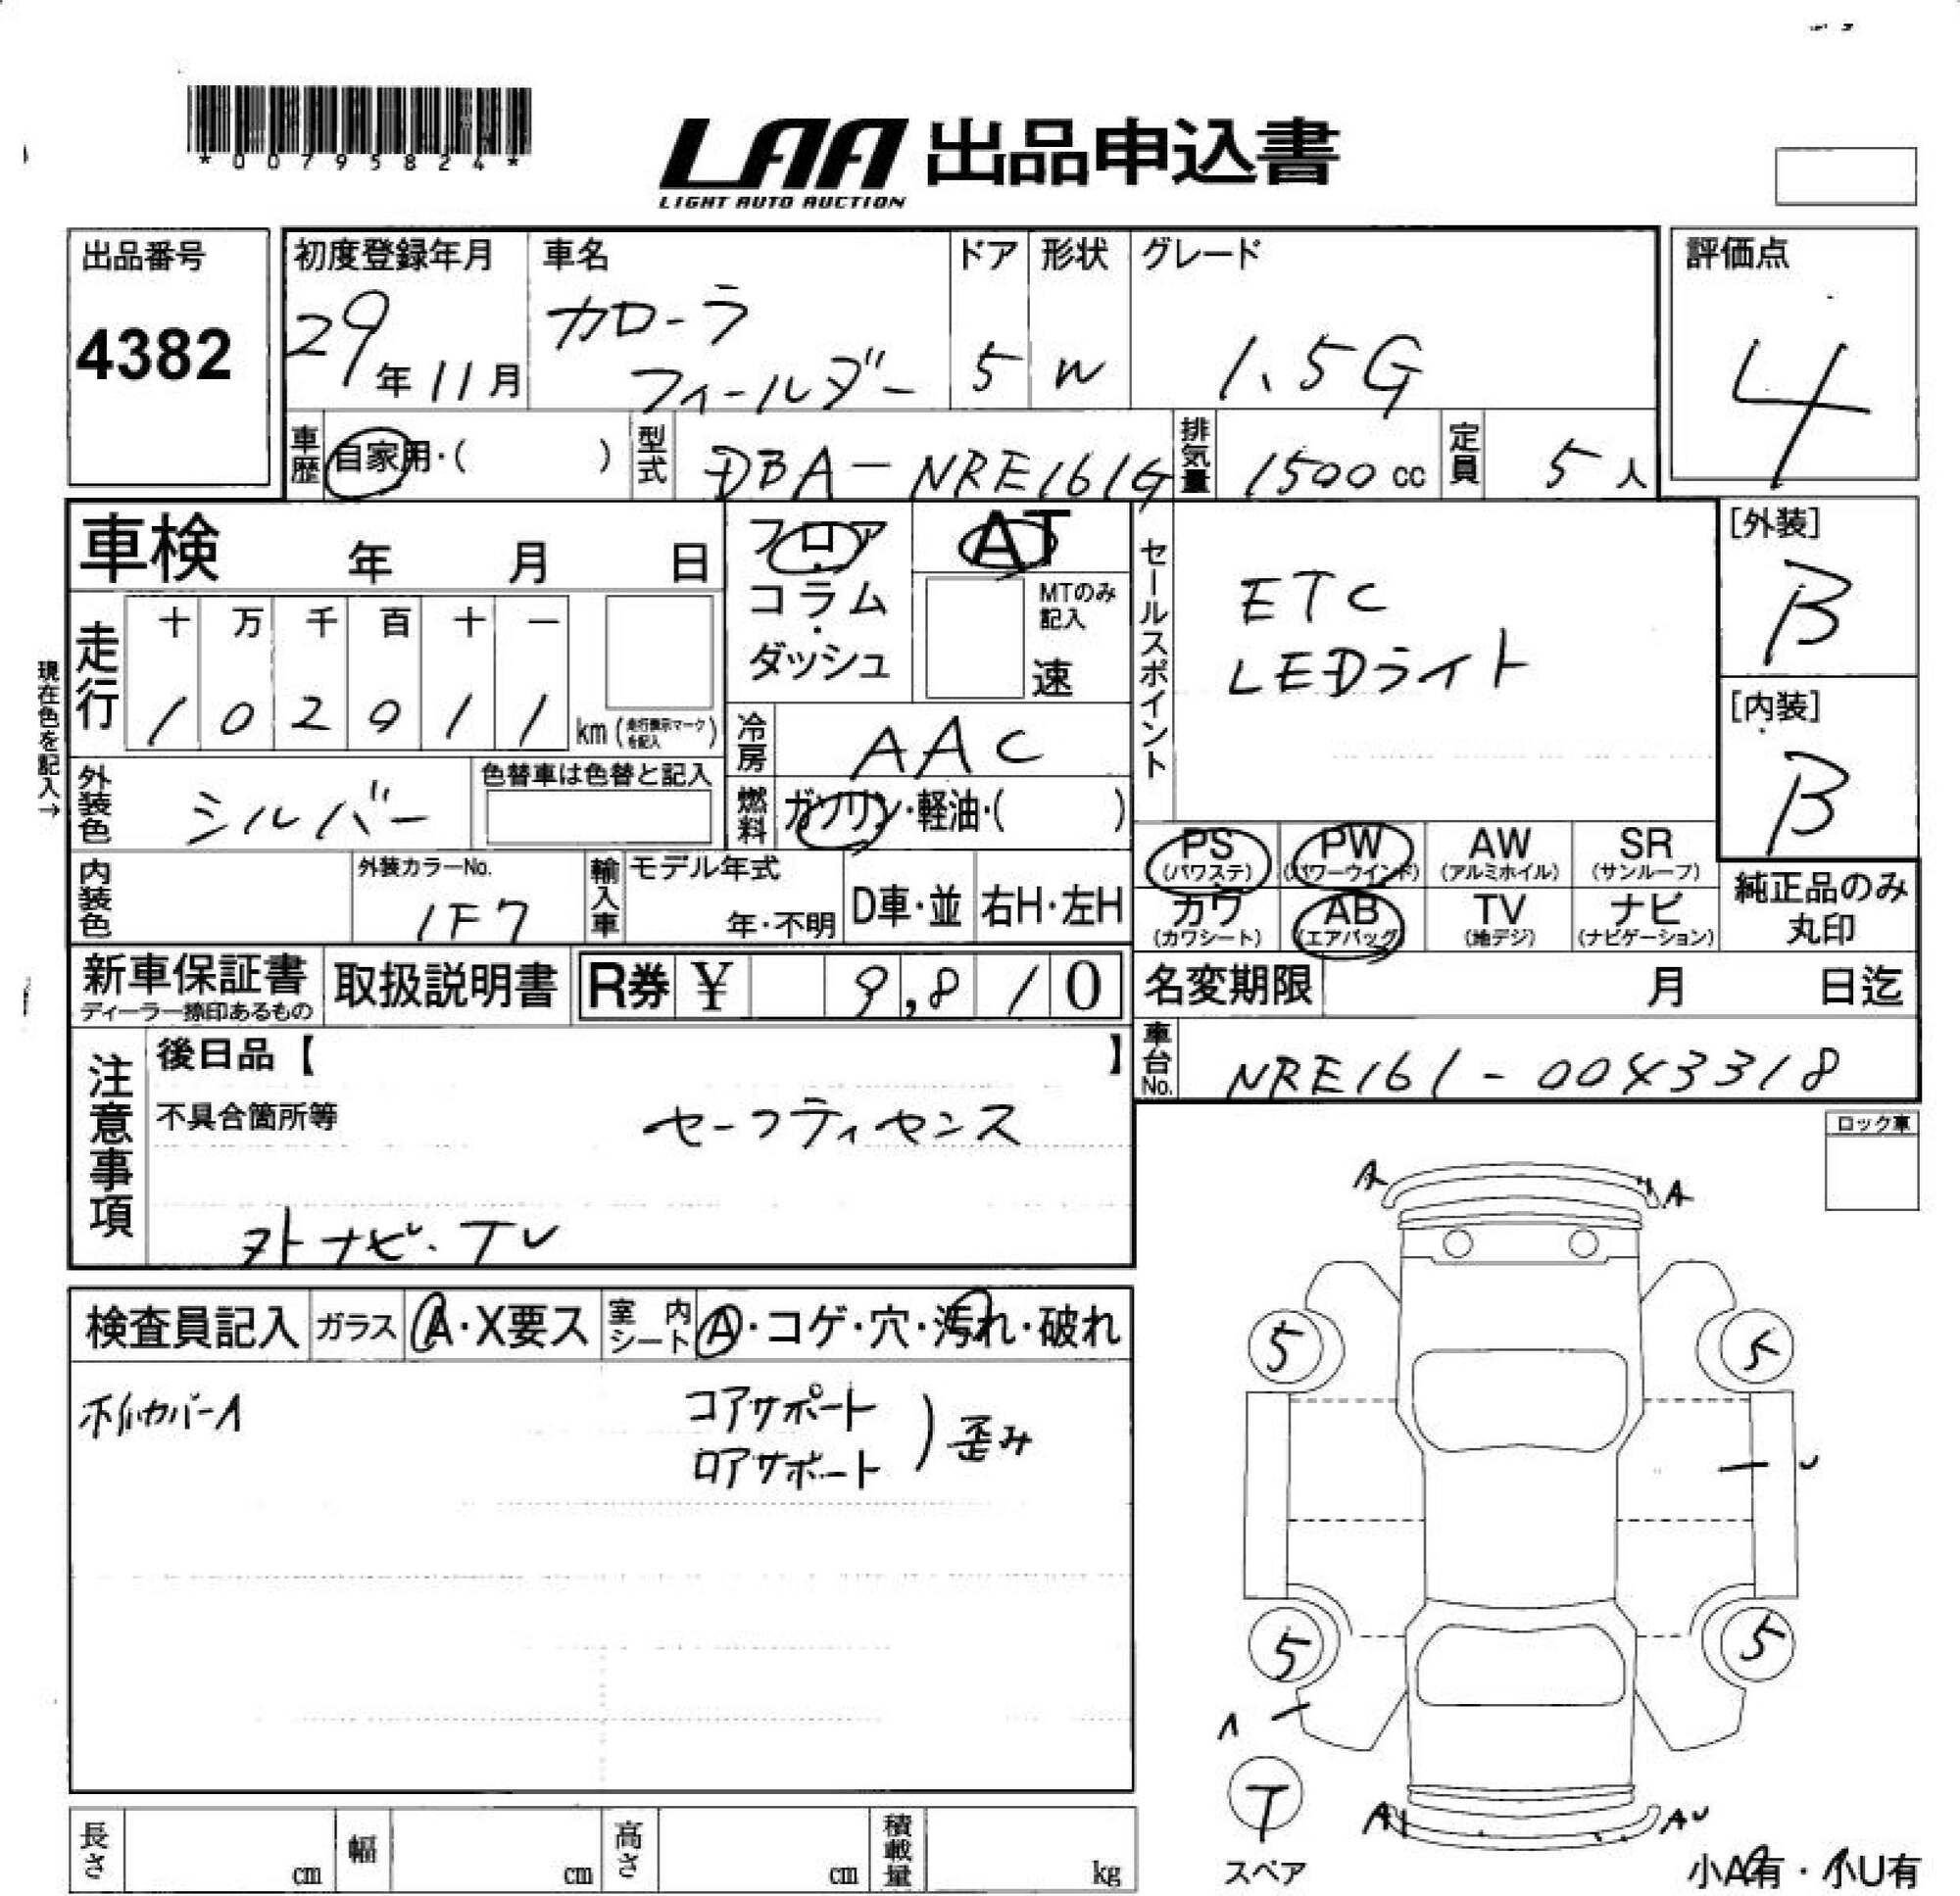 *00795824*
LAA 出品申込書
LIGHT AUTO AUCTION
出品番号
4382
初度登録年月
29年11月
車名
カローラ
フィールダー
ドア
5
形状
W
グレード
1.5G
評価点
4
車歴 自家用・( )
型式 DBA-NRE161G
排気量 1500cc
定員 5人
車検 年 月 日
フロア
コラム
・
ダッシュ
AT
MTのみ
記入
速
セールスポイント
ETC
LEDライト
[外装]
B
[内装]
B
現在色を記入→
走行
十 万 千 百 十 一
1 0 2 9 1 1 km (走行表示マークを記入)
冷房 AAC
外装色 シルバー
色替車は色替と記入
燃料 ガソリン・軽油・( )
内装色
外装カラーNo.
1F7
輸入車
モデル年式
年・不明
D車・並
右H・左H
PS (パワステ)
PW (パワーウインド)
AW (アルミホイル)
SR (サンルーフ)
カワ (カワシート)
AB (エアバッグ)
TV (地デジ)
ナビ (ナビゲーション)
純正品のみ
丸印
新車保証書
ディーラー捺印あるもの
取扱説明書
R券 ¥ 9,810
名変期限 月 日迄
車台No. NRE161-0043318
注意事項
後日品【 】
不具合箇所等
セーフティセンス
外ナビ・TV
ロック車
検査員記入
ガラス A・X要ス
室内シート A・コゲ・穴・汚れ・破れ
ホイルカバーA
コアサポート
ロアサポート
)歪み
A A
5 5
U
5 5
A
T
スペア
A AU
小A有・小U有
長さ cm
幅 cm
高さ cm
積載量 kg